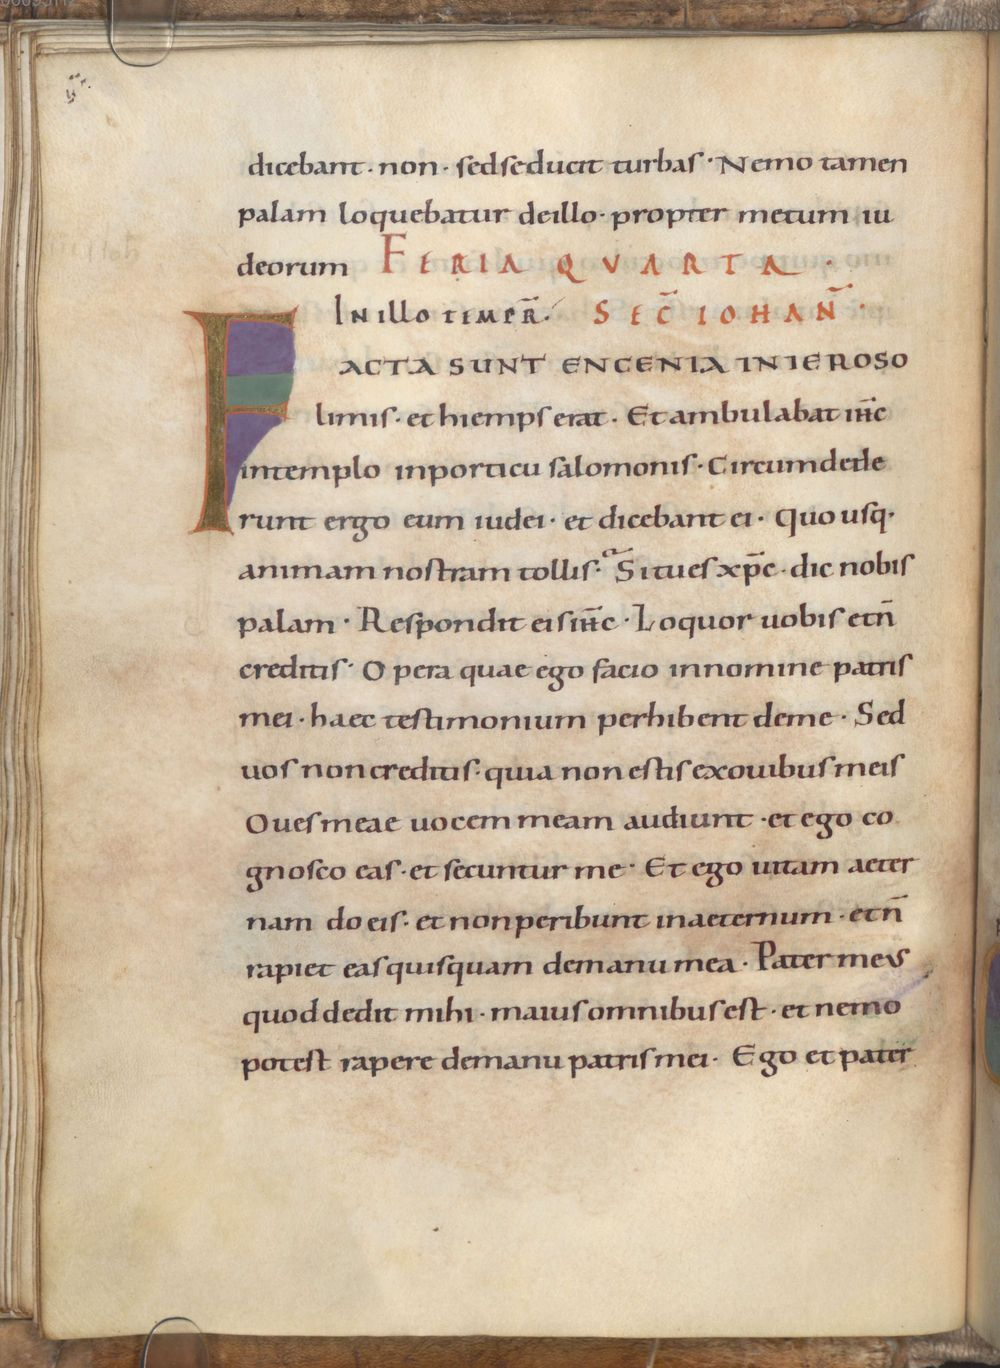 dicebant · non · sed seducit turbas · Nemo tamen
palam loquebatur de illo · propter metum iu
deorum FERIA QVARTA ·
In illo temp̅r̅ · SEC̅ IOHAN̅ ·
FACTA SUNT ENCENIA IN IEROSO
limis · et hiemps erat · Et ambulabat ih̅c
in templo in porticu salomonis · Circumdede
runt ergo eum iudei · et dicebant ei · Quo usq·
animam nostram tollis · Si tu es xp̅c · dic nobis
palam · Respondit eis ih̅c · Loquor uobis et n̅
creditis · Opera quae ego facio in nomine patris
mei · haec testimonium perhibent de me · Sed
uos non creditis · quia non estis ex ouibus meis
Oues meae uocem meam audiunt · et ego co
gnosco eas · et secuntur me · Et ego uitam aeter
nam do eis · et non peribunt in aeternum · et n̅
rapiet eas quisquam de manu mea · Pater meus
quod dedit mihi · maius omnibus est · et nemo
potest rapere de manu patris mei · Ego et pater